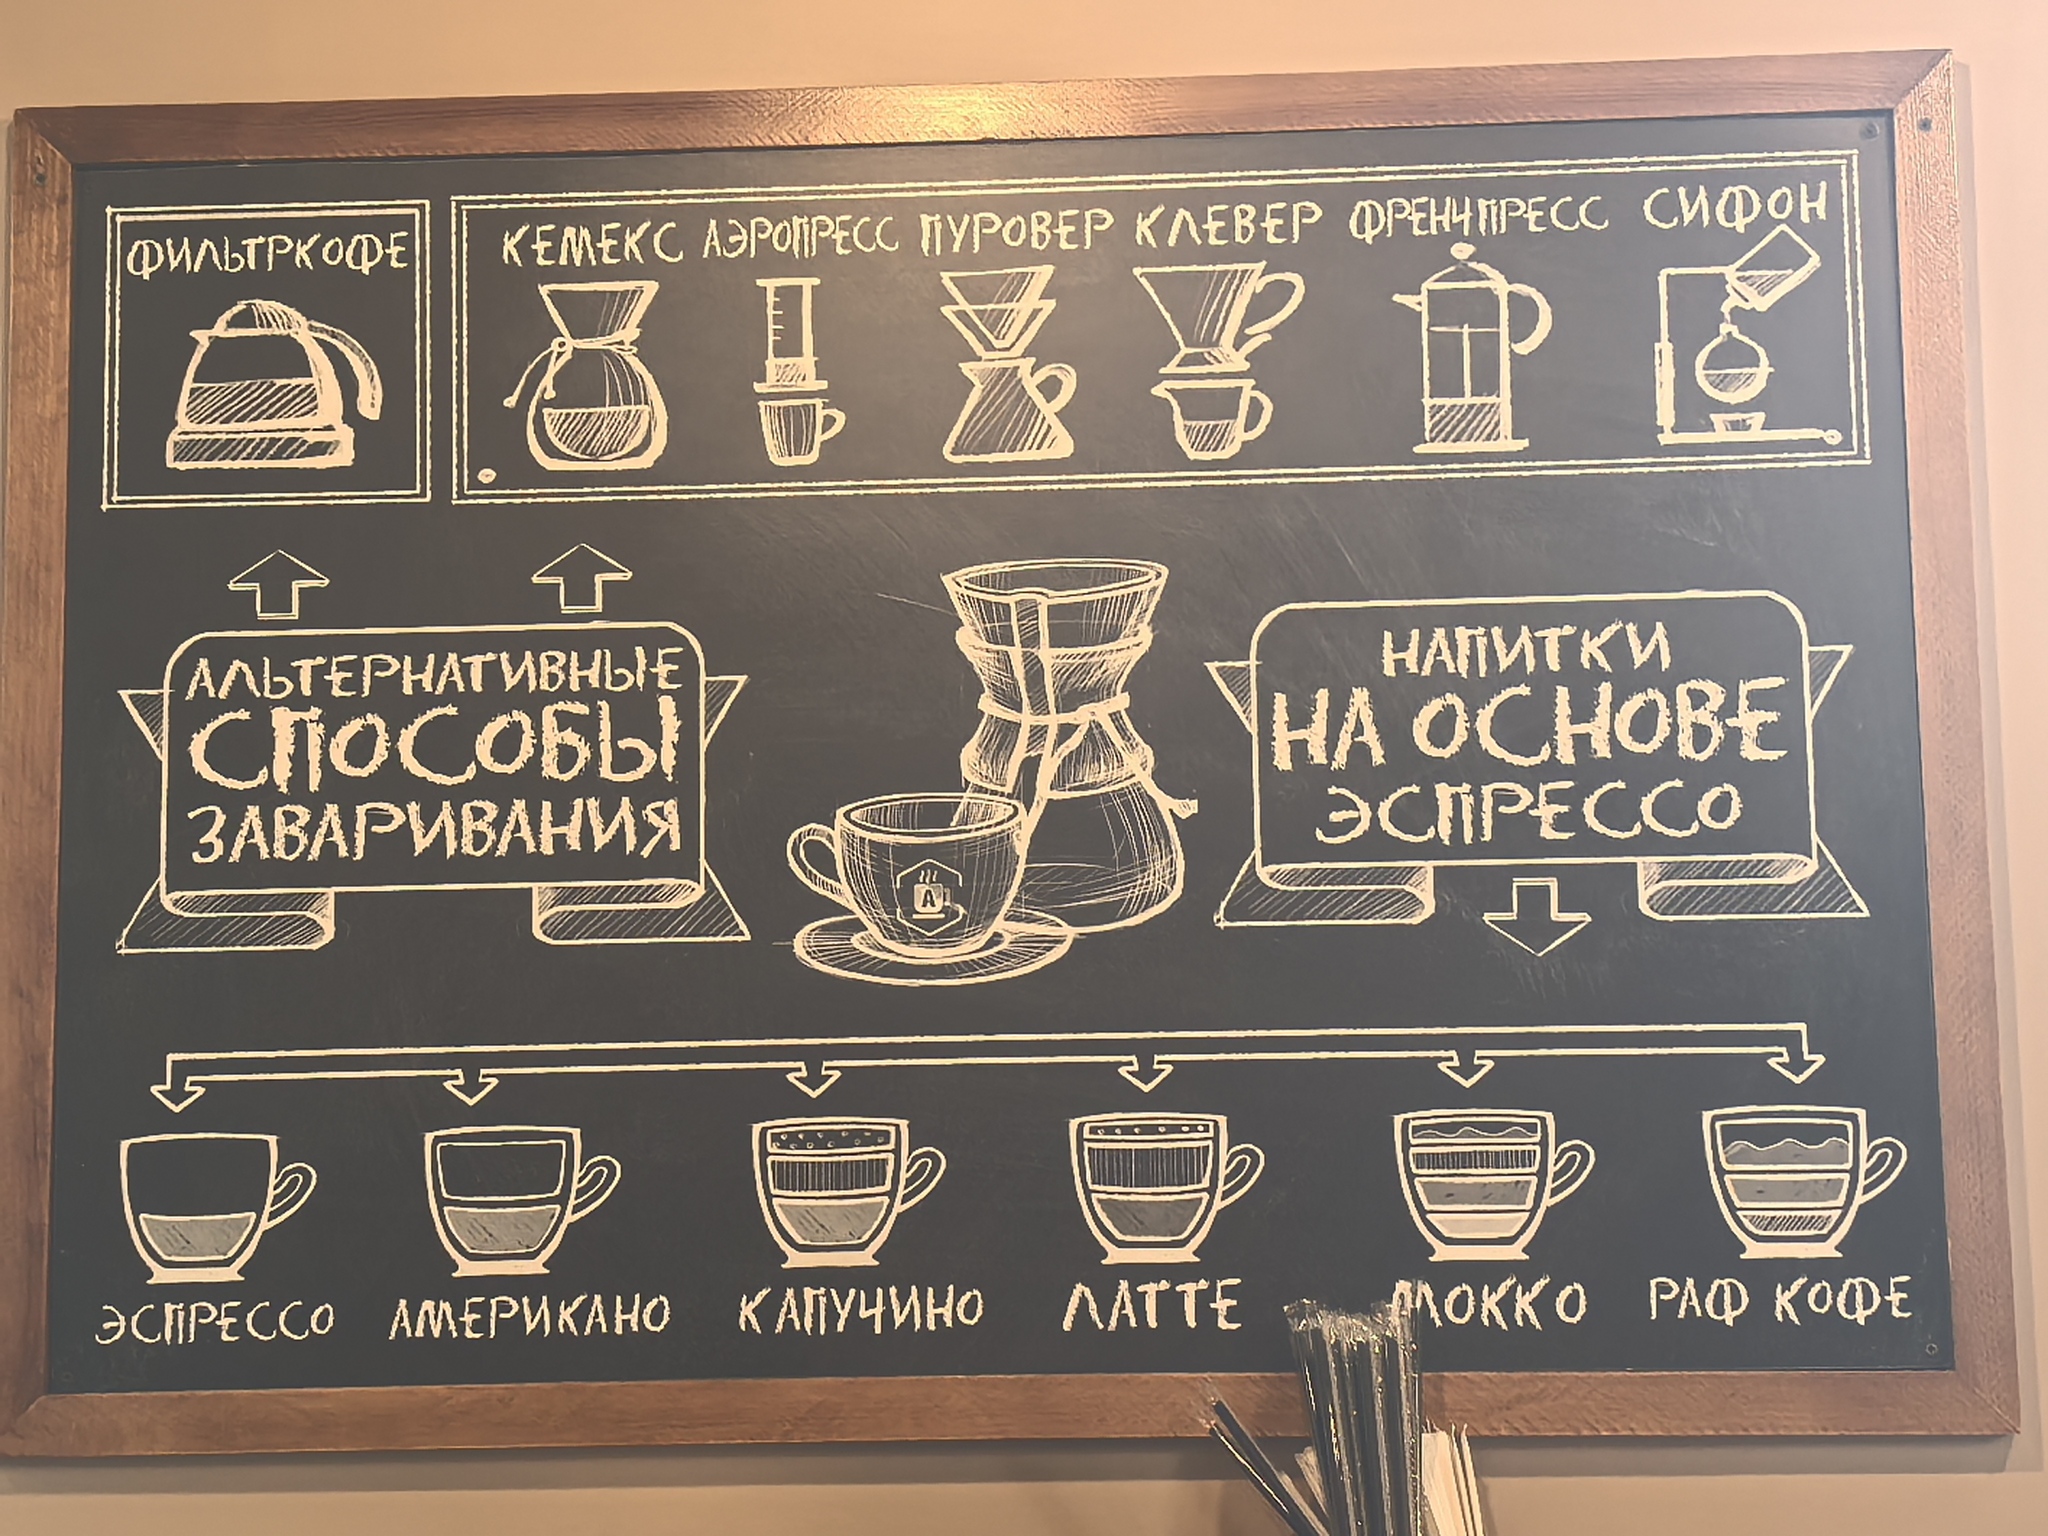 ФИЛЬТРКОФЕ
КЕМЕКС АЭРОПРЕСС ПУРОВЕР КЛЕВЕР ФРЕНЧПРЕСС СИФОН
АЛЬТЕРНАТИВНЫЕ
СПОСОБЫ
ЗАВАРИВАНИЯ
A
НАПИТКИ
НА ОСНОВЕ
ЭСПРЕССО
ЭСПРЕССО АМЕРИКАНО КАПУЧИНО ЛАТТЕ МОККО РАФ КОФЕ